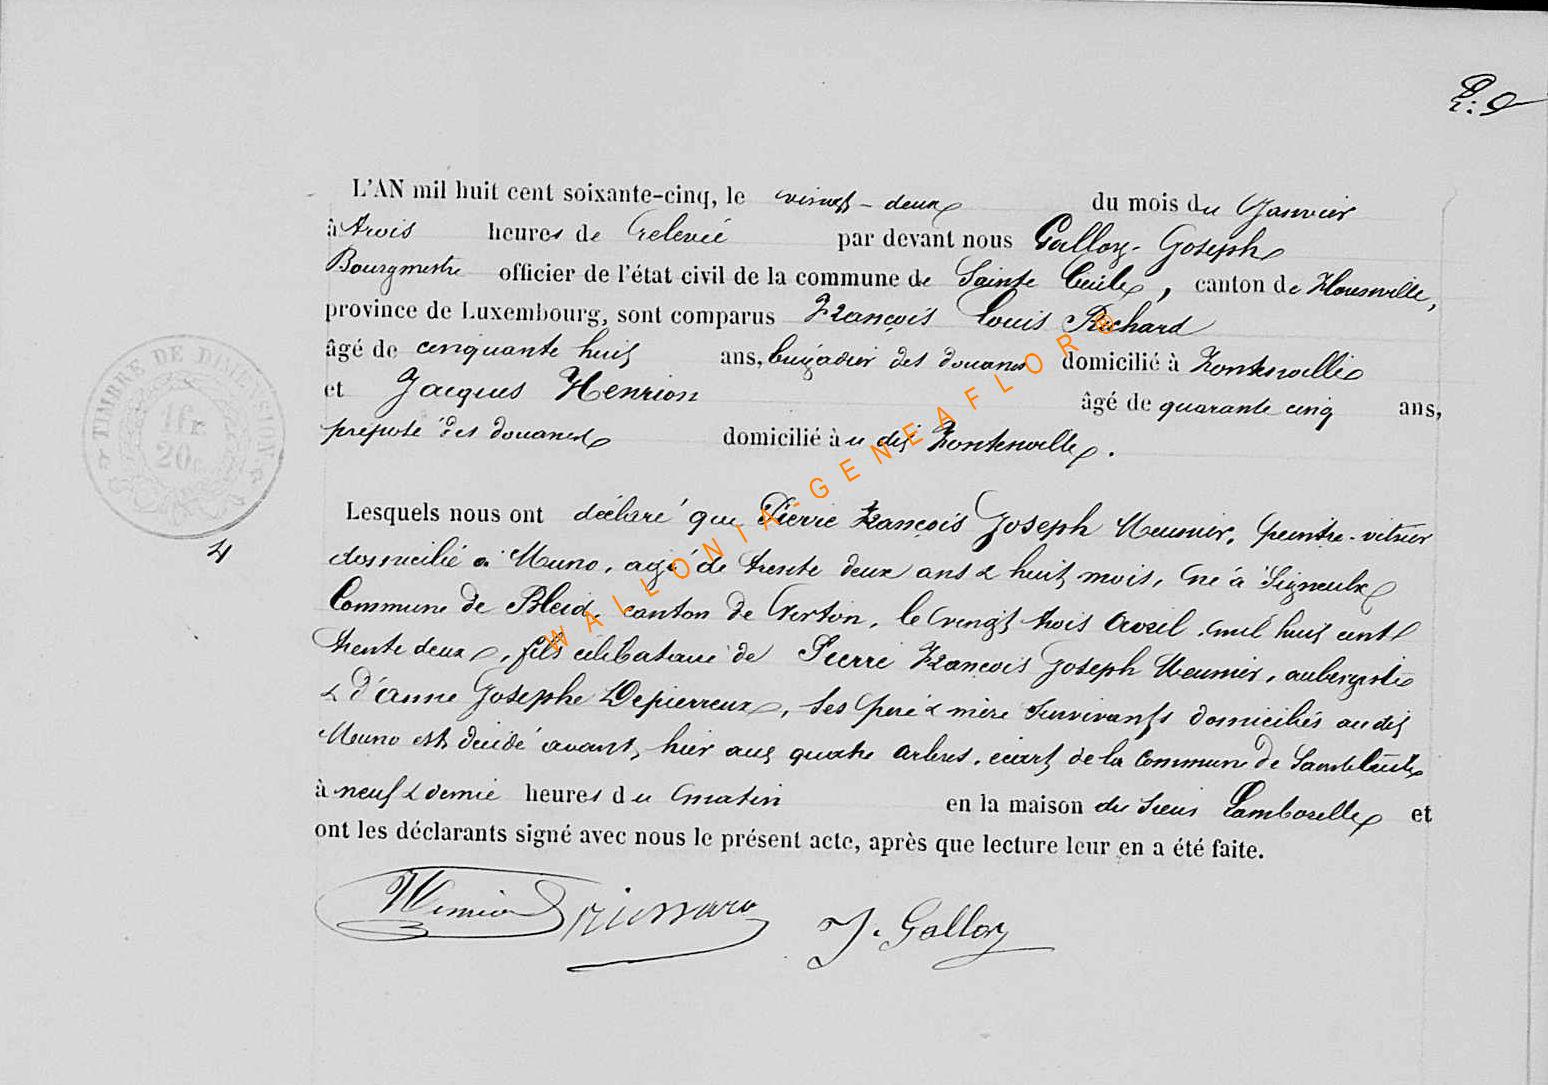 L'AN mil huit cent soixante-cinq, le vingt-deux du mois du Janvier
à trois heures de relevée par devant nous Galloy Joseph
Bourgmestre officier de l'état civil de la commune de Sainte Cécile, canton de Florenville,
province de Luxembourg, sont comparus François Louis Richard
âgé de cinquante huit ans, brigadier des douanes domicilié à Fontenoille
et Jacques Henrion âgé de quarante cinq ans,
préposé des douanes domicilié à u dit Fontenoille.
TIMBRE DE DIMENSION
1 fr.
20c
4
Lesquels nous ont déclaré que Pierre François Joseph Meunier, peintre-vitrier
domicilié à Muno, agé de trente deux ans & huit mois, né à Signeulx
Commune de Bleid, canton de Virton, le vingt trois avril mil huit cent
trente deux, fils célibataire de Pierre François Joseph Meunier, aubergiste
& d'anne Josephe Depierreux, ses père & mère survivants domiciliés audit
Muno est décédé avant hier aux quatre arbres, écart de la Commune de Sainte Cécile
à neuf & demie heures du matin en la maison du sieur Lamborelle et
ont les déclarants signé avec nous le présent acte, après que lecture leur en a été faite.
Henrion Richard J. Galloy
WALLONIA-GENEAFLOR®